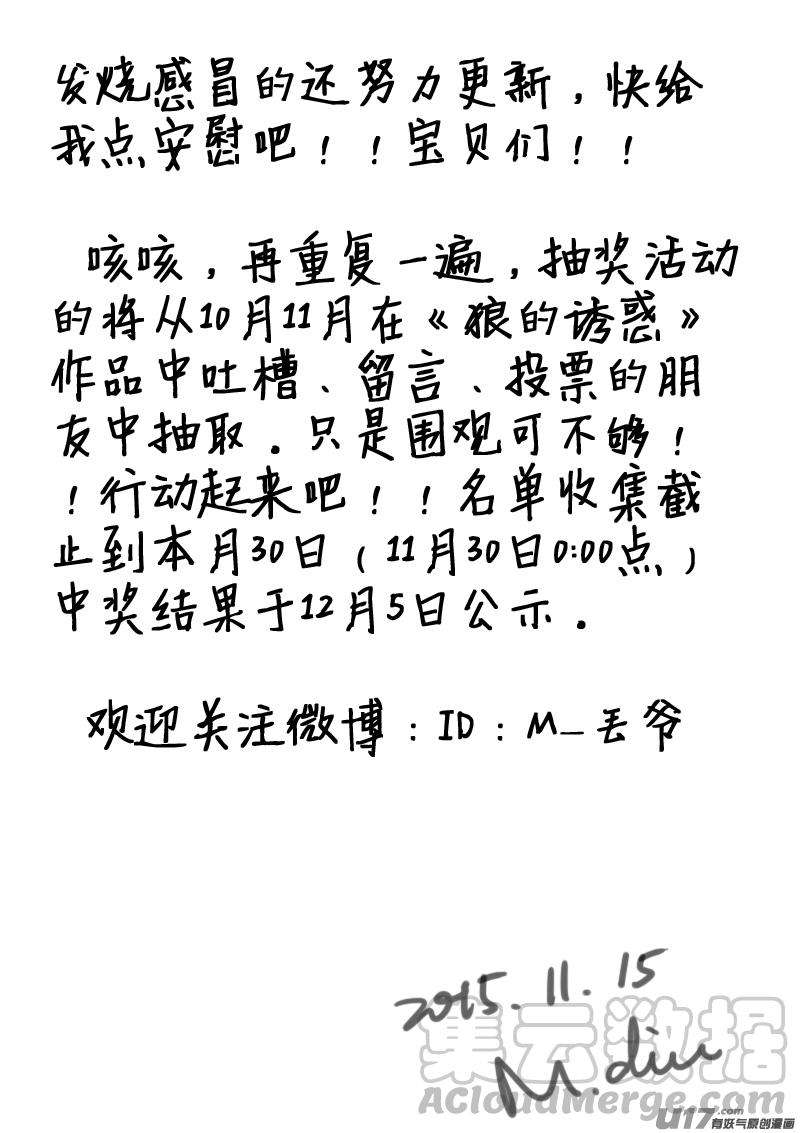 发烧感冒的还努力更新，快给
我点安慰吧！！宝贝们！！
咳咳，再重复一遍，抽奖活动
的将从10月11月在《狼的诱惑》
作品中吐槽、留言、投票的朋
友中抽取。只是围观可不够！
！行动起来吧！！名单收集截
止到本月30日（11月30日0:00点）
中奖结果于12月5日公示.
欢迎关注微博：ID：M_丢爷
2015.11.15
M.diu
集云数据
AcloudMerge.com
U17.com
有妖气原创漫画